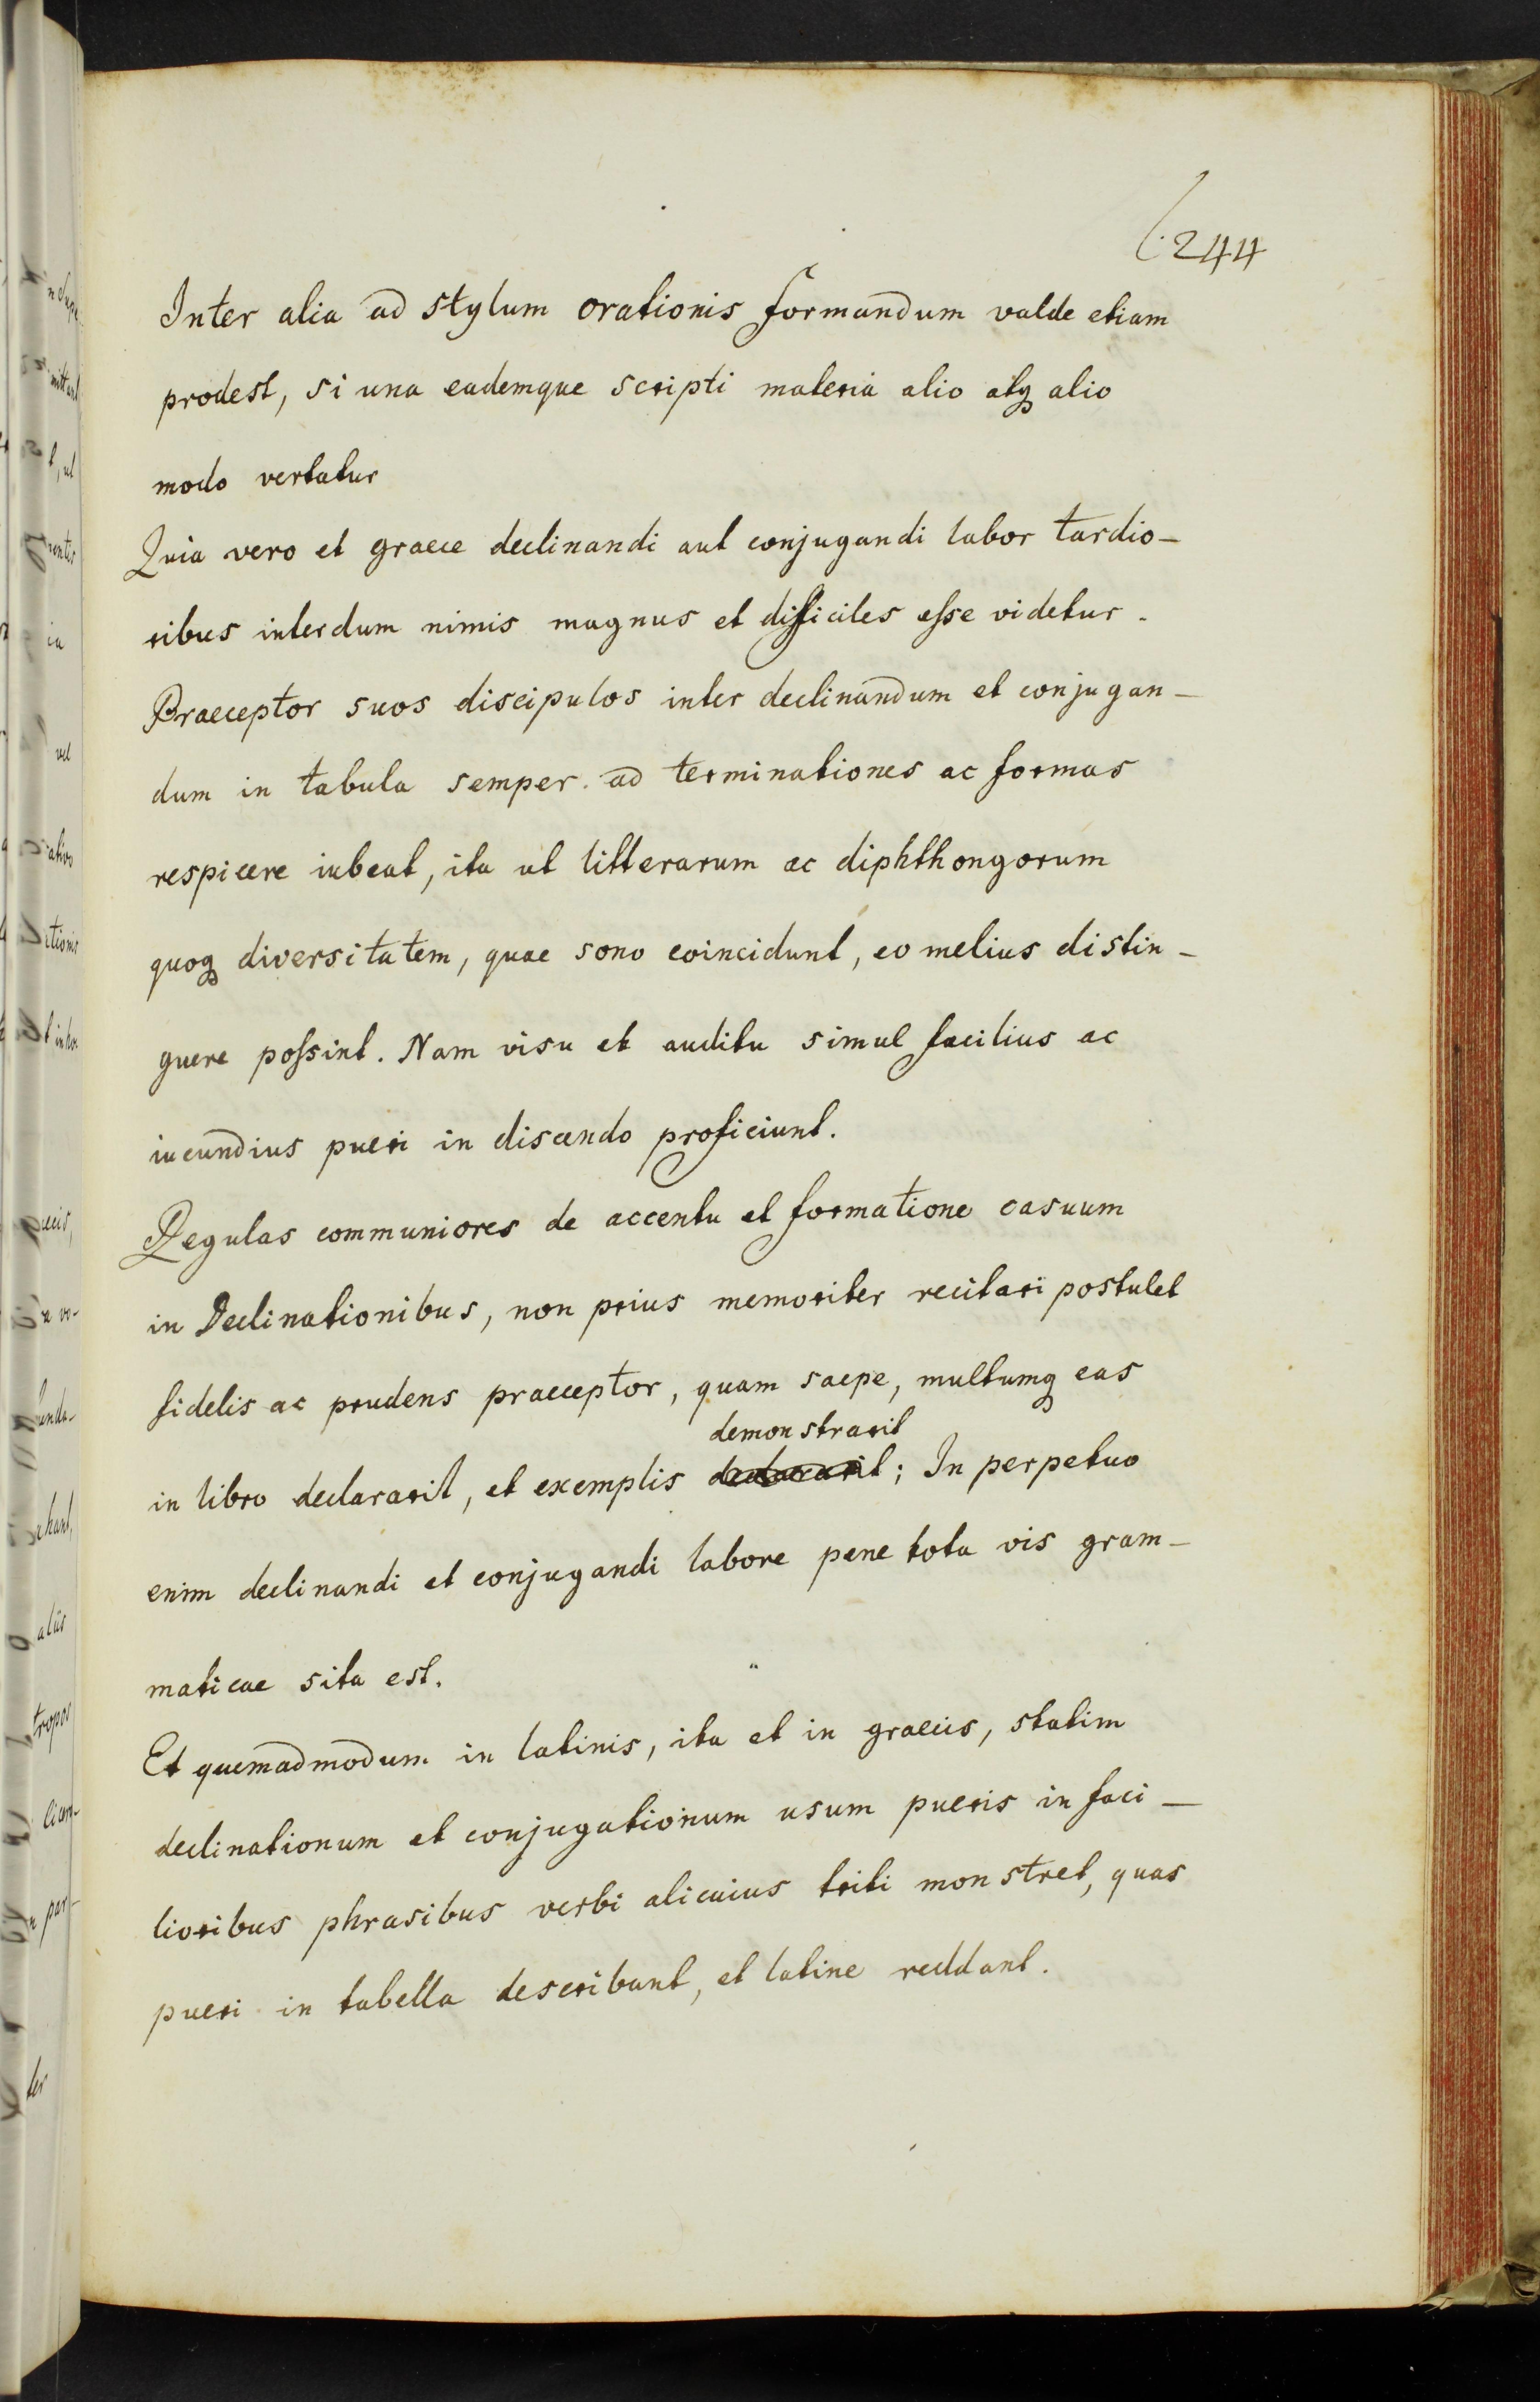 244
Inter alia ad stylum orationis formandum valde etiam
prodest, si una eademque scripti materia alio atq alio
modo vertatur
Quia vero et graece declinandi aut conjugandi labor tardio-
ribus interdum nimis magnus et difficiles esse videtur.
Praeceptor suos discipulos inter declinandum et conjugan-
dum in tabula semper ad terminationes ac formas
respicere iubeat, ita ut litterarum ac diphthongorum
quoq diversitatem, quae sono coincidunt, eo melius distin-
guere possint. Nam visu et auditu simul facilius ac
iucundius pueri in discendo proficiunt.
Regulas communiores de accentu et formatione casuum
in Declinationibus, non prius memoriter recitari postulet
fidelis ac prudens praeceptor, quam saepe, multumq eas
demonstrarit
in libro declararit, et exemplis ; In perpetuo
enim declinandi et conjugandi labore pene tota vis gram-
maticae sita est.
Et quemadmodum in latinis, ita et in graecis, statim
declinationum et conjugationum usum pueris in faci-
lioribus phrasibus verbi alicuius triti monstret, quas
pueri in tabella describant, et latine reddant.